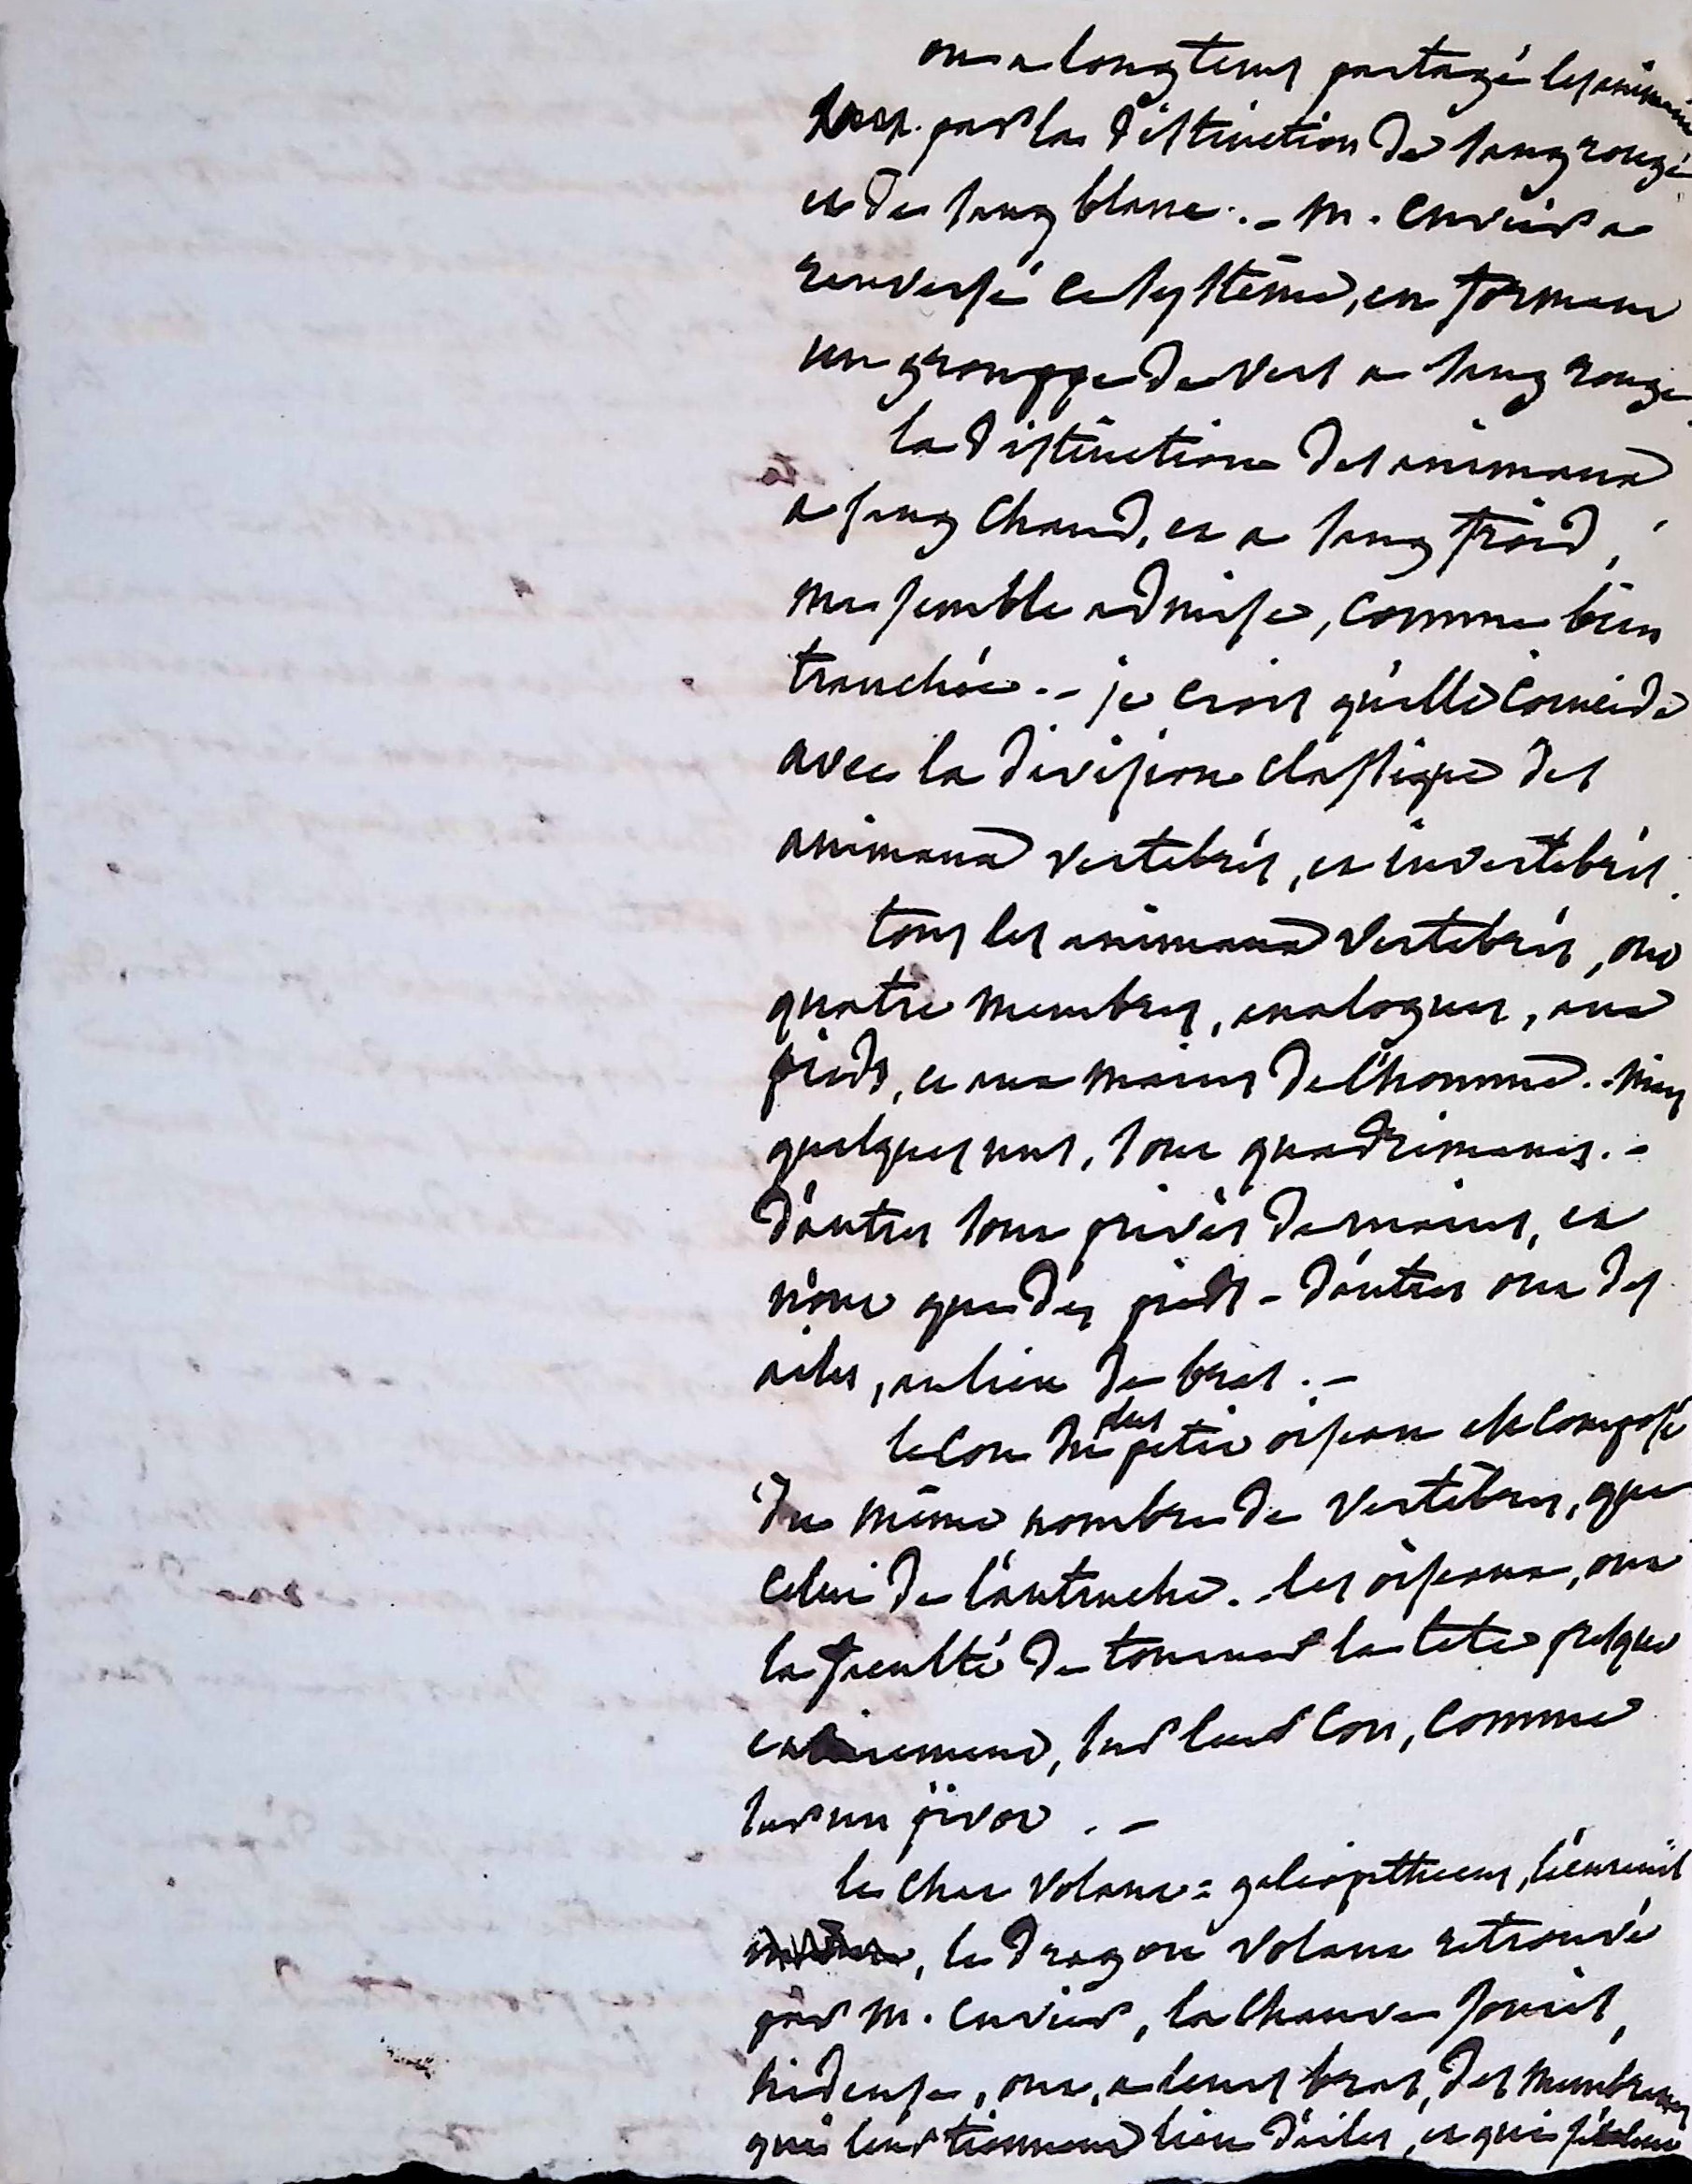 on a longtems partagé les animaux
par la distinction de sang rouge
et de sang blanc. - M. Cuvier a
renversé ce systême, en formant
un grouppe de vers a sang rouge.
la distinction des animaux
a sang chaud, et a sang froid,
me semble admise, comme bien
tranchée. - je crois qu'elle coincide
avec la division classique des
animaux vertebrés, et invertebrés.
tous les animaux vertebrés, ont
quatre membres, analogues, aux
pieds, et aux mains de l'homme. - mais
quelques uns, sont quadrimanes. -
d'autres sont privés de mains, et
n'ont que des pieds - d'autres ont des
ailes, au lieu de bras. -
le cou du plus petit oiseau est composé
du même nombre de vertèbres, que
celui de l'autruche. - les oiseaux, ont
la faculté de tourner la tete presque
entierement, sur leur cou, comme
sur un pivot. -
le chat volant = galeopithecus, l'écureuil
, le dragon volant retrouvé
par M. Cuvier, la chauve souris,
hideuse, ont, a leurs bras, des membranes
qui leur tiennent lieu d'ailes, et qui